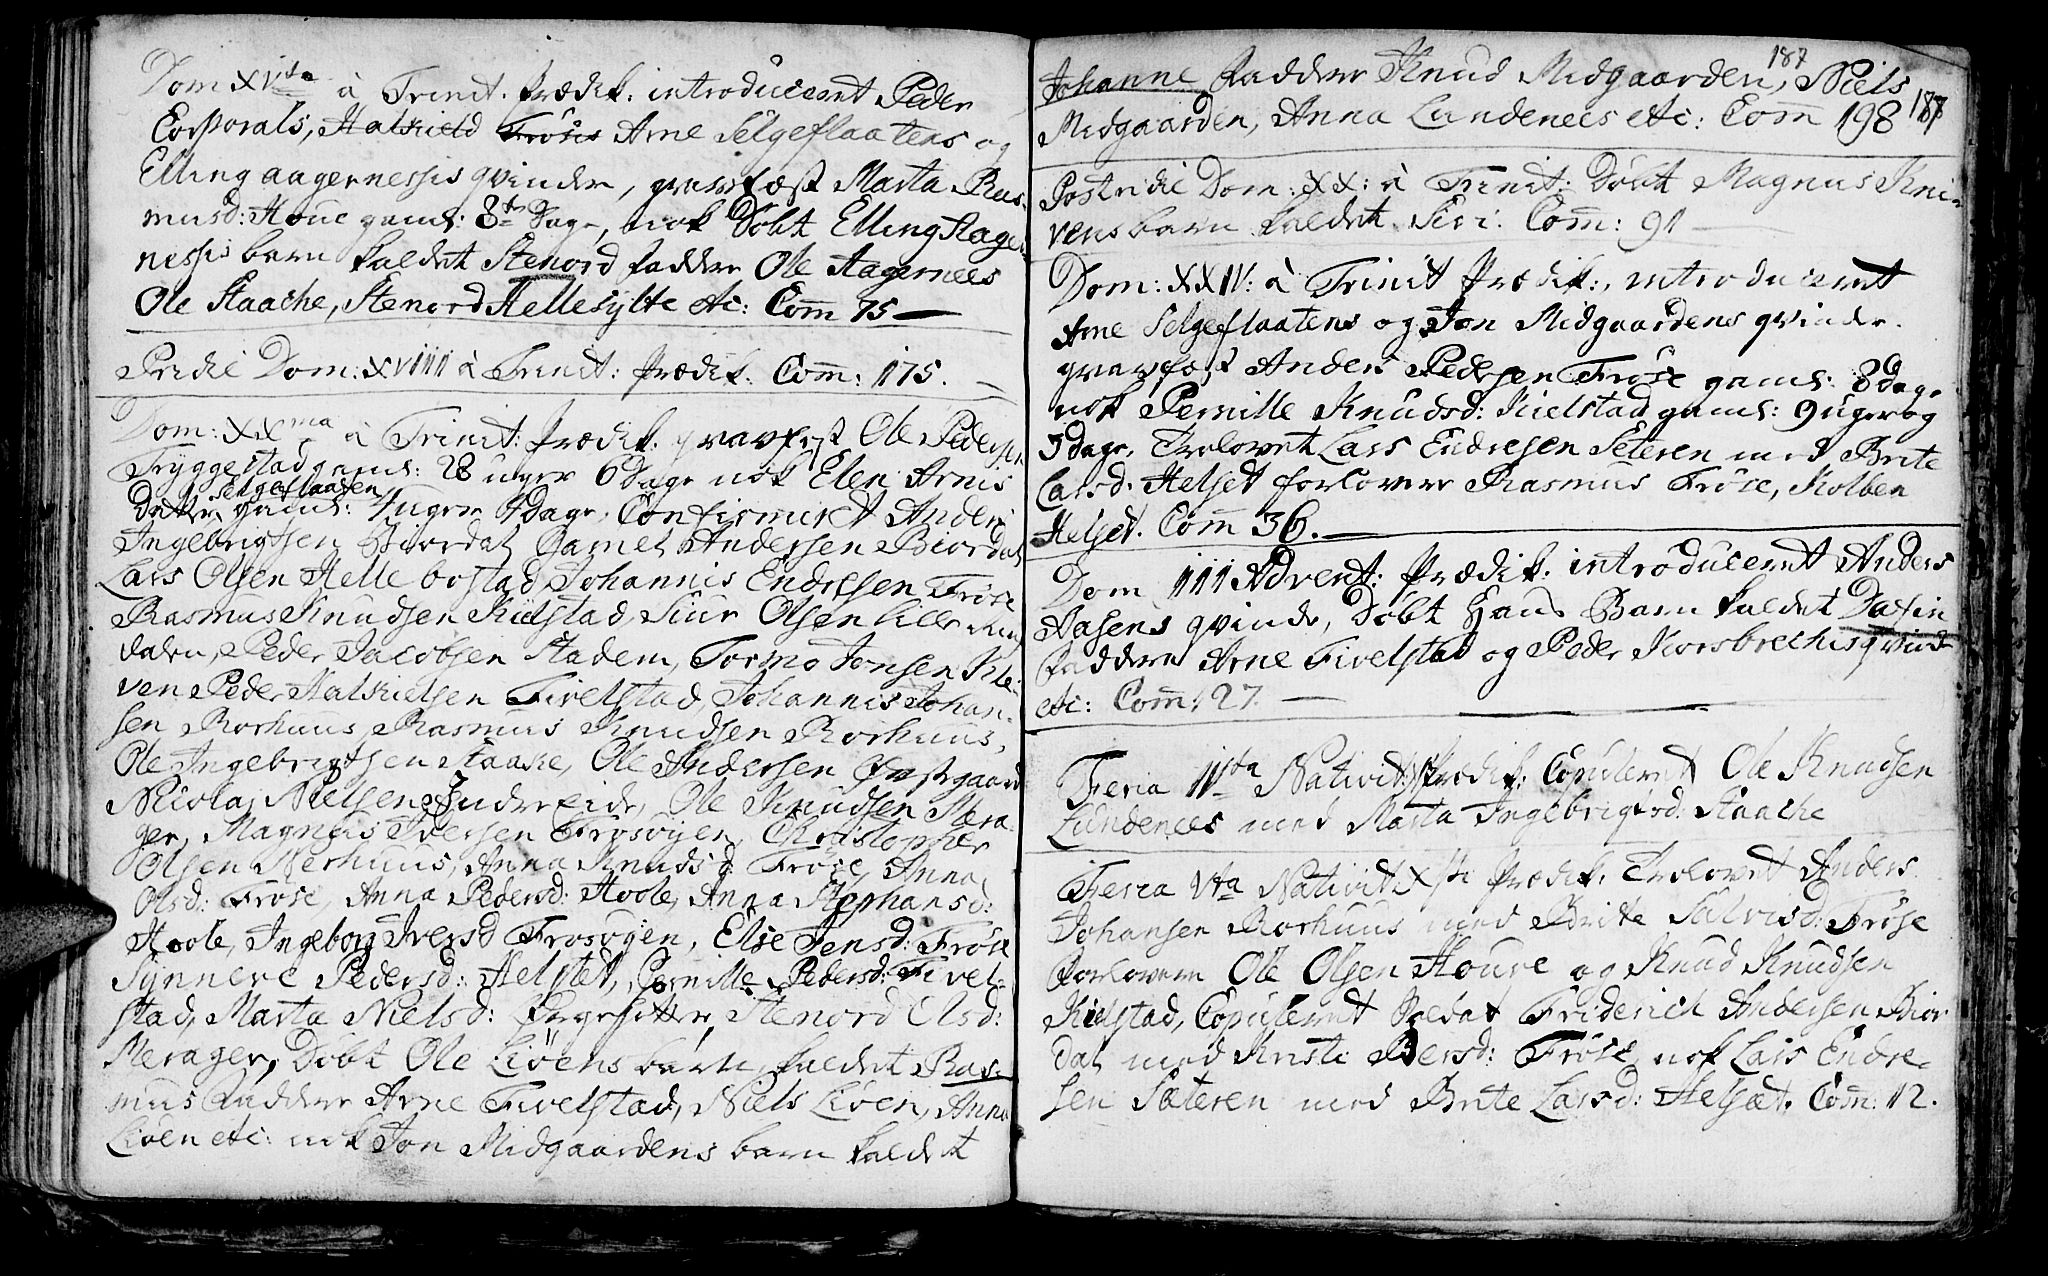 Dom XVIta à Trinit. Prædik: introduceret Peder
Corporals, Halkield Frøses Arne Selgeflaatens og
Elling aagernessis qvinder, gravfæst Marta Ras-
musd: Houe gaml: 8te Dage, nok Døbt Elling Aager-
nessis barn kaldet Stenord faddere Ole Aagernees
Ole Staache, Stenord Hellesylte etc: Com̄ 75
Pridie Dom: XVIIII à Trinit: Prædik. Com̄: 175.
Dom: XXma à Trinit: Prædik. gravfæst Ole Pedersen
Tryggestad gaml: 28 uger 6 Dage nok Elen Arnis
Selgeflaaten
Datter gaml: 7 uger 4 dage, Confirmeret Anders
Ingebrigtsen Biordal Daniel Andersen Biordal
Lars Olsen Hellebostad Johannis Endresen Frøse
Rasmus Knudsen Kielstad, Siur Olsen Lille
dalen, Peder Jacobsen Stadem, Tormo Jonsen Kle-
ven Peder Halkielsen Fivelstad, Johannis Johan-
sen Rorhuus Rasmus Knudsen Rorhuus,
Ole Ingebrigtsen Staache, Ole Andersen Opstgaard
Nicolaj Nielsen Indre Eide, Ole Knudsen Mera-
ger, Magnus Iversen Frøsøyen, Christopher
Olsen Nerhuus, Anna Knudsd: Frøse, Anna
Olsd: Frøse, Anna Pedersd: Hoole, Anna Stephansd:
Hoole, Ingeborg Iversd Frøsøyen, Else Jensd: Frøse
Synneve Pedersd: Helstet, Pernille Pedersd: Fivel-
stad, Marta Nielsd: Stenord Olsd:
Merager, Døbt Ole Liøens barn kaldet Ras-
mus Faddere Arne Fivelstad, Niels Liøen, Anna
Liøen etc: nok Jon Midgaardens barn kaldet
187
Johanne Faddere Knud Midgaarden, Niels
Midgaarden, Anna Lundenees etc: Com̄ 198 188
Postridie Dom: XX: à Trinit: Døbt Magnus Kni-
vens barn kaldet Siri: Com̄: 91
Dom: XXIV: à Trinit Prædik:, introduceret
Arne Selgeflaatens og Jon Midgaardens qvinder.
gravfæst Anders Pedersen Frøse gaml: 8 Dage
nok Pernille Knudsd: Kielstad gaml: 9 uger og
3 Dage, Trolovet Lars Endresen Seteren med Brite
Larsd: Helset forlovere Rasmus Frøse, Kolben
Helset. Com̄ 36.
Dom III Advent: Prædik: introduceret Anders
Aasens qvinde, Døbt Hans Barn kaldet Daffin
Faddere Arne Fivelstad og Peder Korsbrechis qvinde
etc: Com̄: 27.
Feria IIta Nativit: Prædik: Copuleret Ole Knudsen
Lundenees med Marta Ingebrigtsd: Staache
Feria Vta Nativit Xsti Prædik. Trolovet Anders
Johansen Rorhuus med Brite Salvisd: Frøse
Forlovere Ole Olsen Houue og Knud Knudsen
Kielstad, Copuleret Soldat Friderich Andersen Bior
dal med Kristi Bersd: Frøse, nok Lars Endre-
sen Sæteren med Brite Larsd: Helsæt. Com̄: 12.